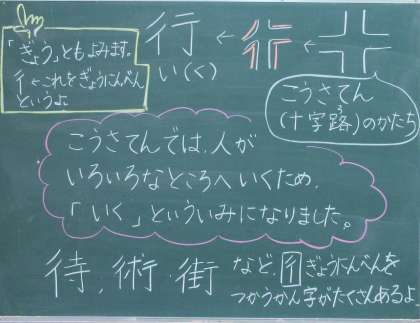 「ぎょう」ともよみます。
彳←これをぎょうにんべん
というよ
行 ← ←
い(く)
こうさてん
(十字路)のかたち
こうさてんでは、人が
いろいろなところへいくため、
「いく」といういみになりました。
待、術、街 など、彳ぎょうにんべんを
つかうかん字がたくさんあるよ。